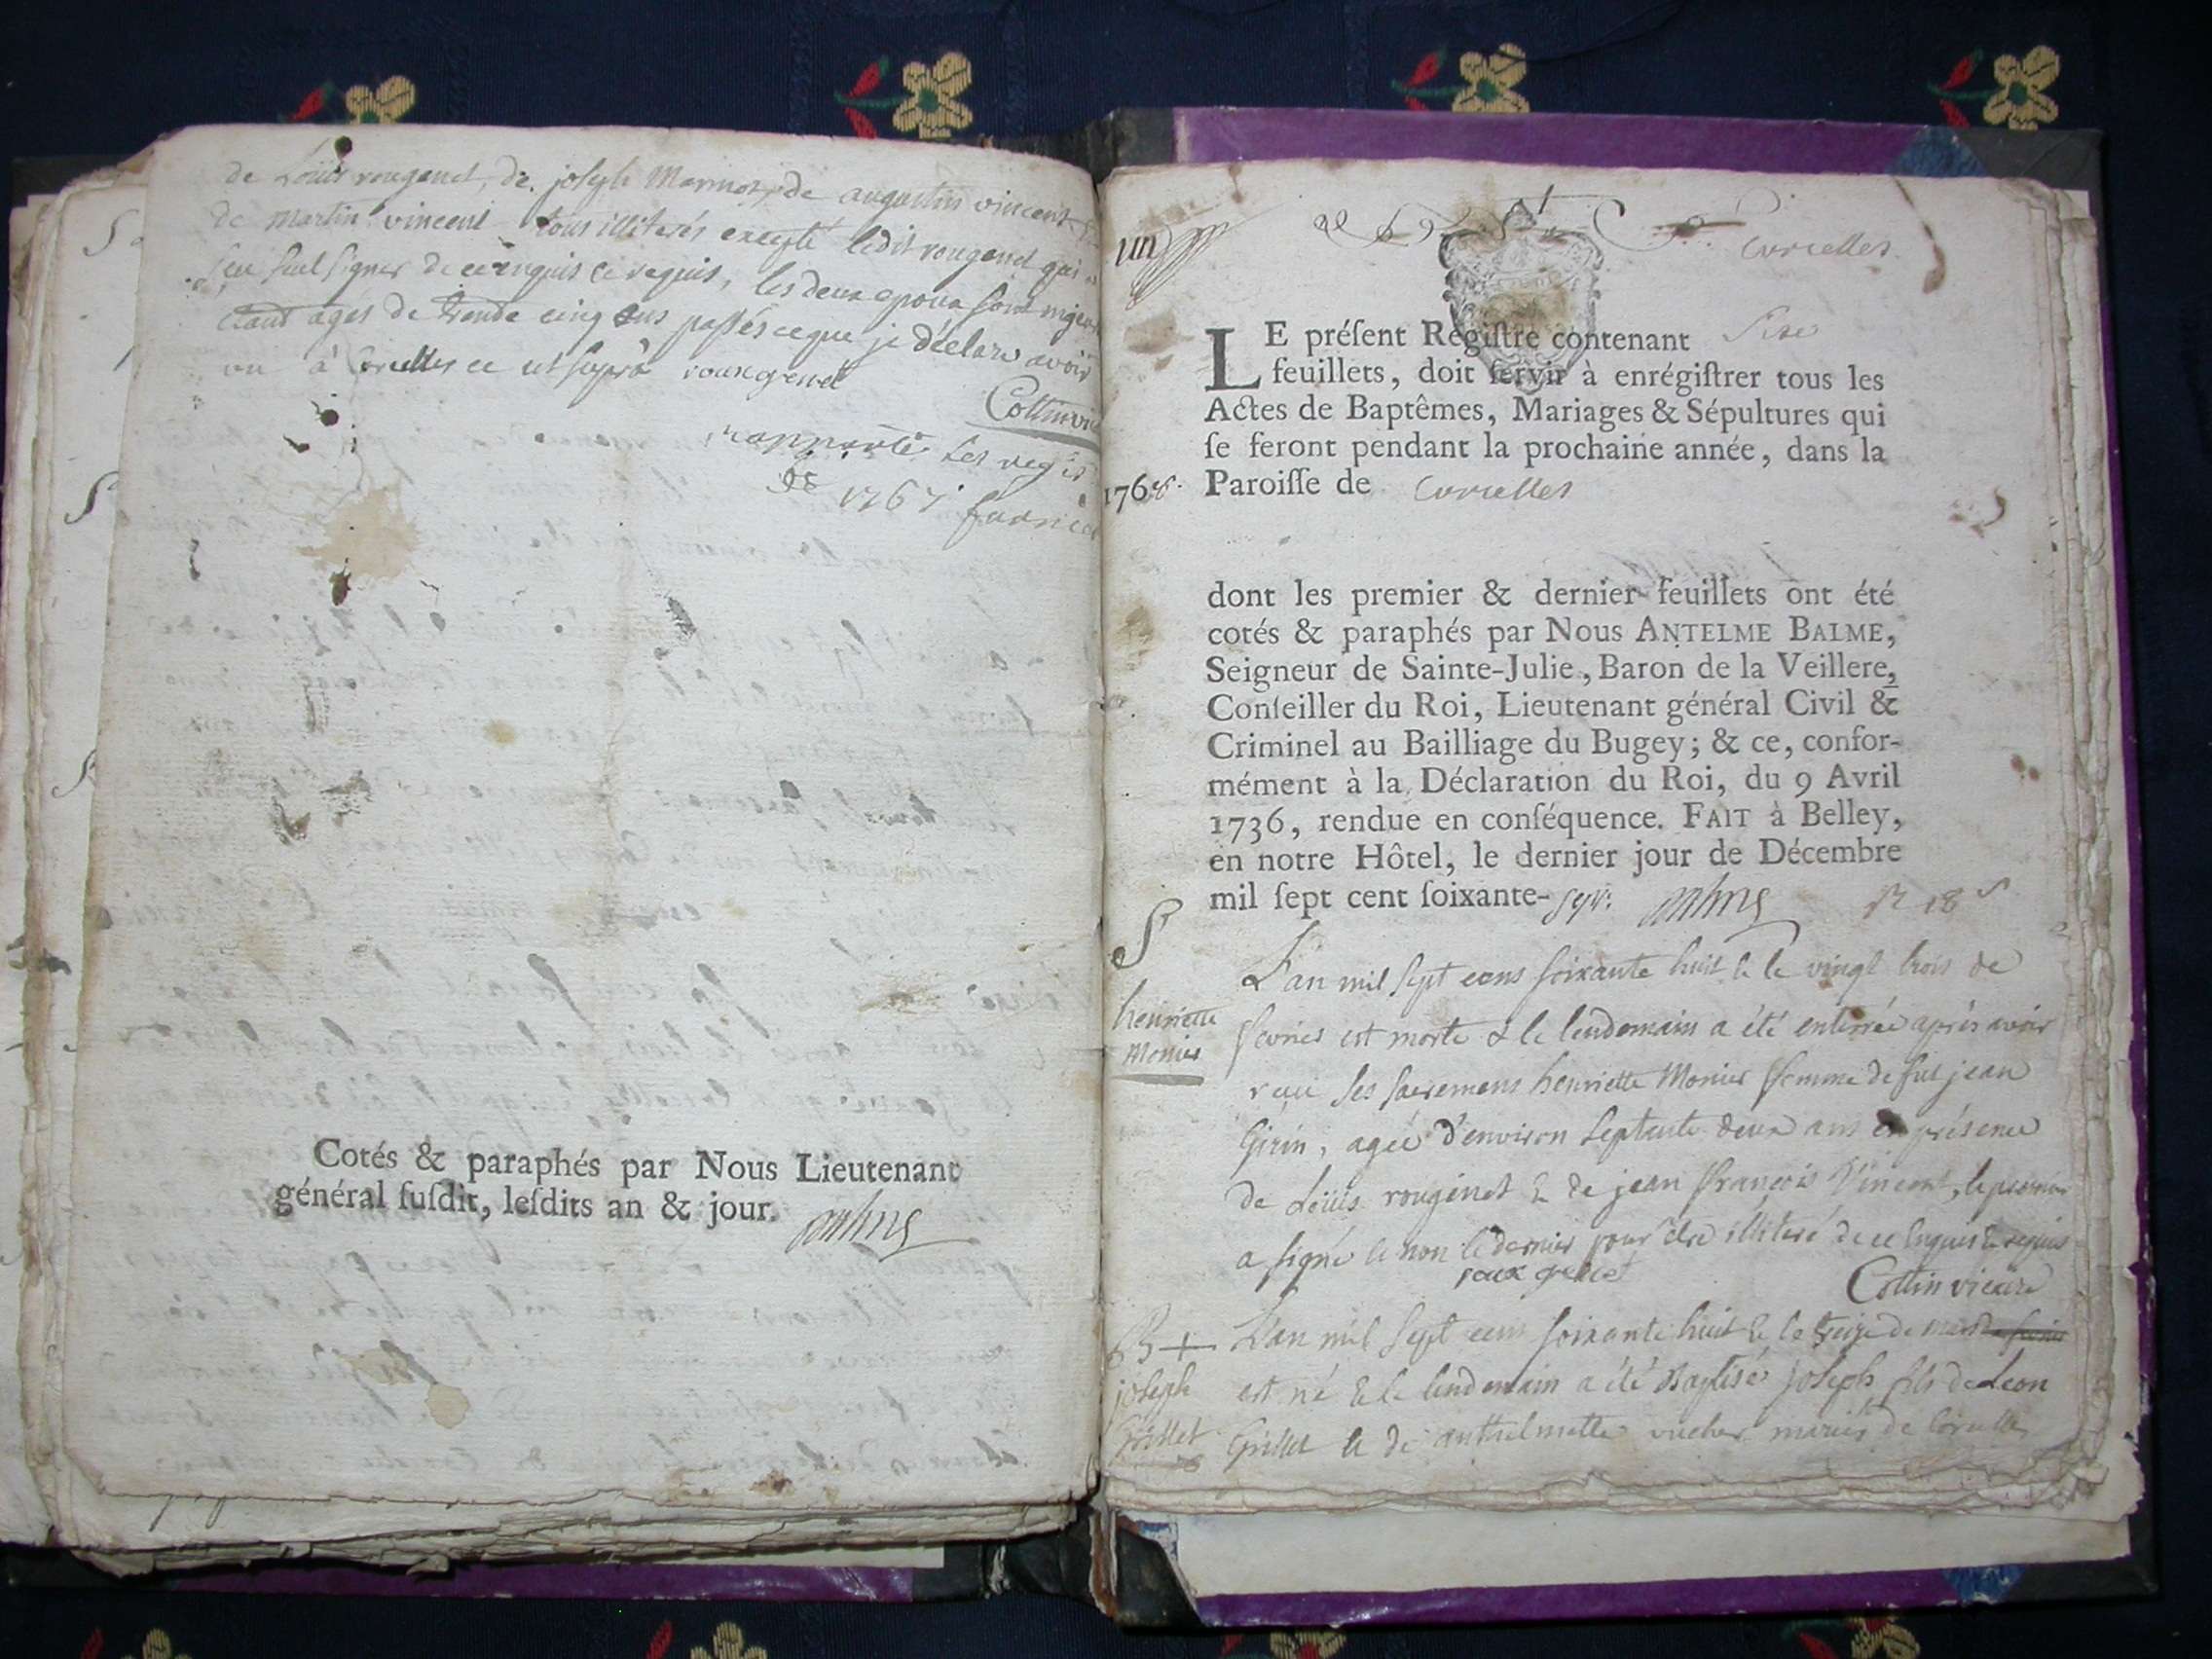 de Loüis rougenet, de joseph Marinot, de augustin vincent
de martin vincent tous illiterés excepté ledit rougenet qui
seu seul signer de ce enquis & requis, les deux epoux sont
etant ages de trente cinq ans passés ce que je déclare avoir
vu à Corcelles ce ut suprà rouxgenet
Collin
rapporté les regis
de 1767
Cotés & paraphés par Nous Lieutenant
général ſuſdit, leſdits an & jour.
un
Corcelles
LE préſent Régiſtre contenant
feuillets, doit ſervir à enrégiſtrer tous les
Actes de Baptêmes, Mariages & Sépultures qui
ſe feront pendant la prochaine année, dans la
1768. Paroiſſe de Corcelles
dont les premier & dernier feuillets ont été
cotés & paraphés par Nous ANTELME BALME,
Seigneur de Sainte-Julie, Baron de la Veillere,
Conſeiller du Roi, Lieutenant général Civil &
Criminel au Bailliage du Bugey; & ce, confor-
mément à la Déclaration du Roi, du 9 Avril
1736, rendue en conſéquence. FAIT à Belley,
en notre Hôtel, le dernier jour de Décembre
mil ſept cent ſoixante-sept.
S
henriette
Monier
L'an mil sept cens soixante huit & le vingt trois de
fevrier est morte & le lendemain a été enterrée après avoir
reçu ses sacremens henriette Monier femme de fut jean
Girin, agée d'environ septante deux ans en présence
de Loüis rougenet & de jean François Vincent, le premier
a signé & non le dernier pour être illiteré de ce enquis & requis
rouxgenet Collin vicaire
B +
joseph
Grillet
L'an mil sept cens soixante huit & le treize de mars
est né & le lendemain a été Baptisé joseph fils de Leon
Grillet & de anthelmette vucher mariés de Corcelles